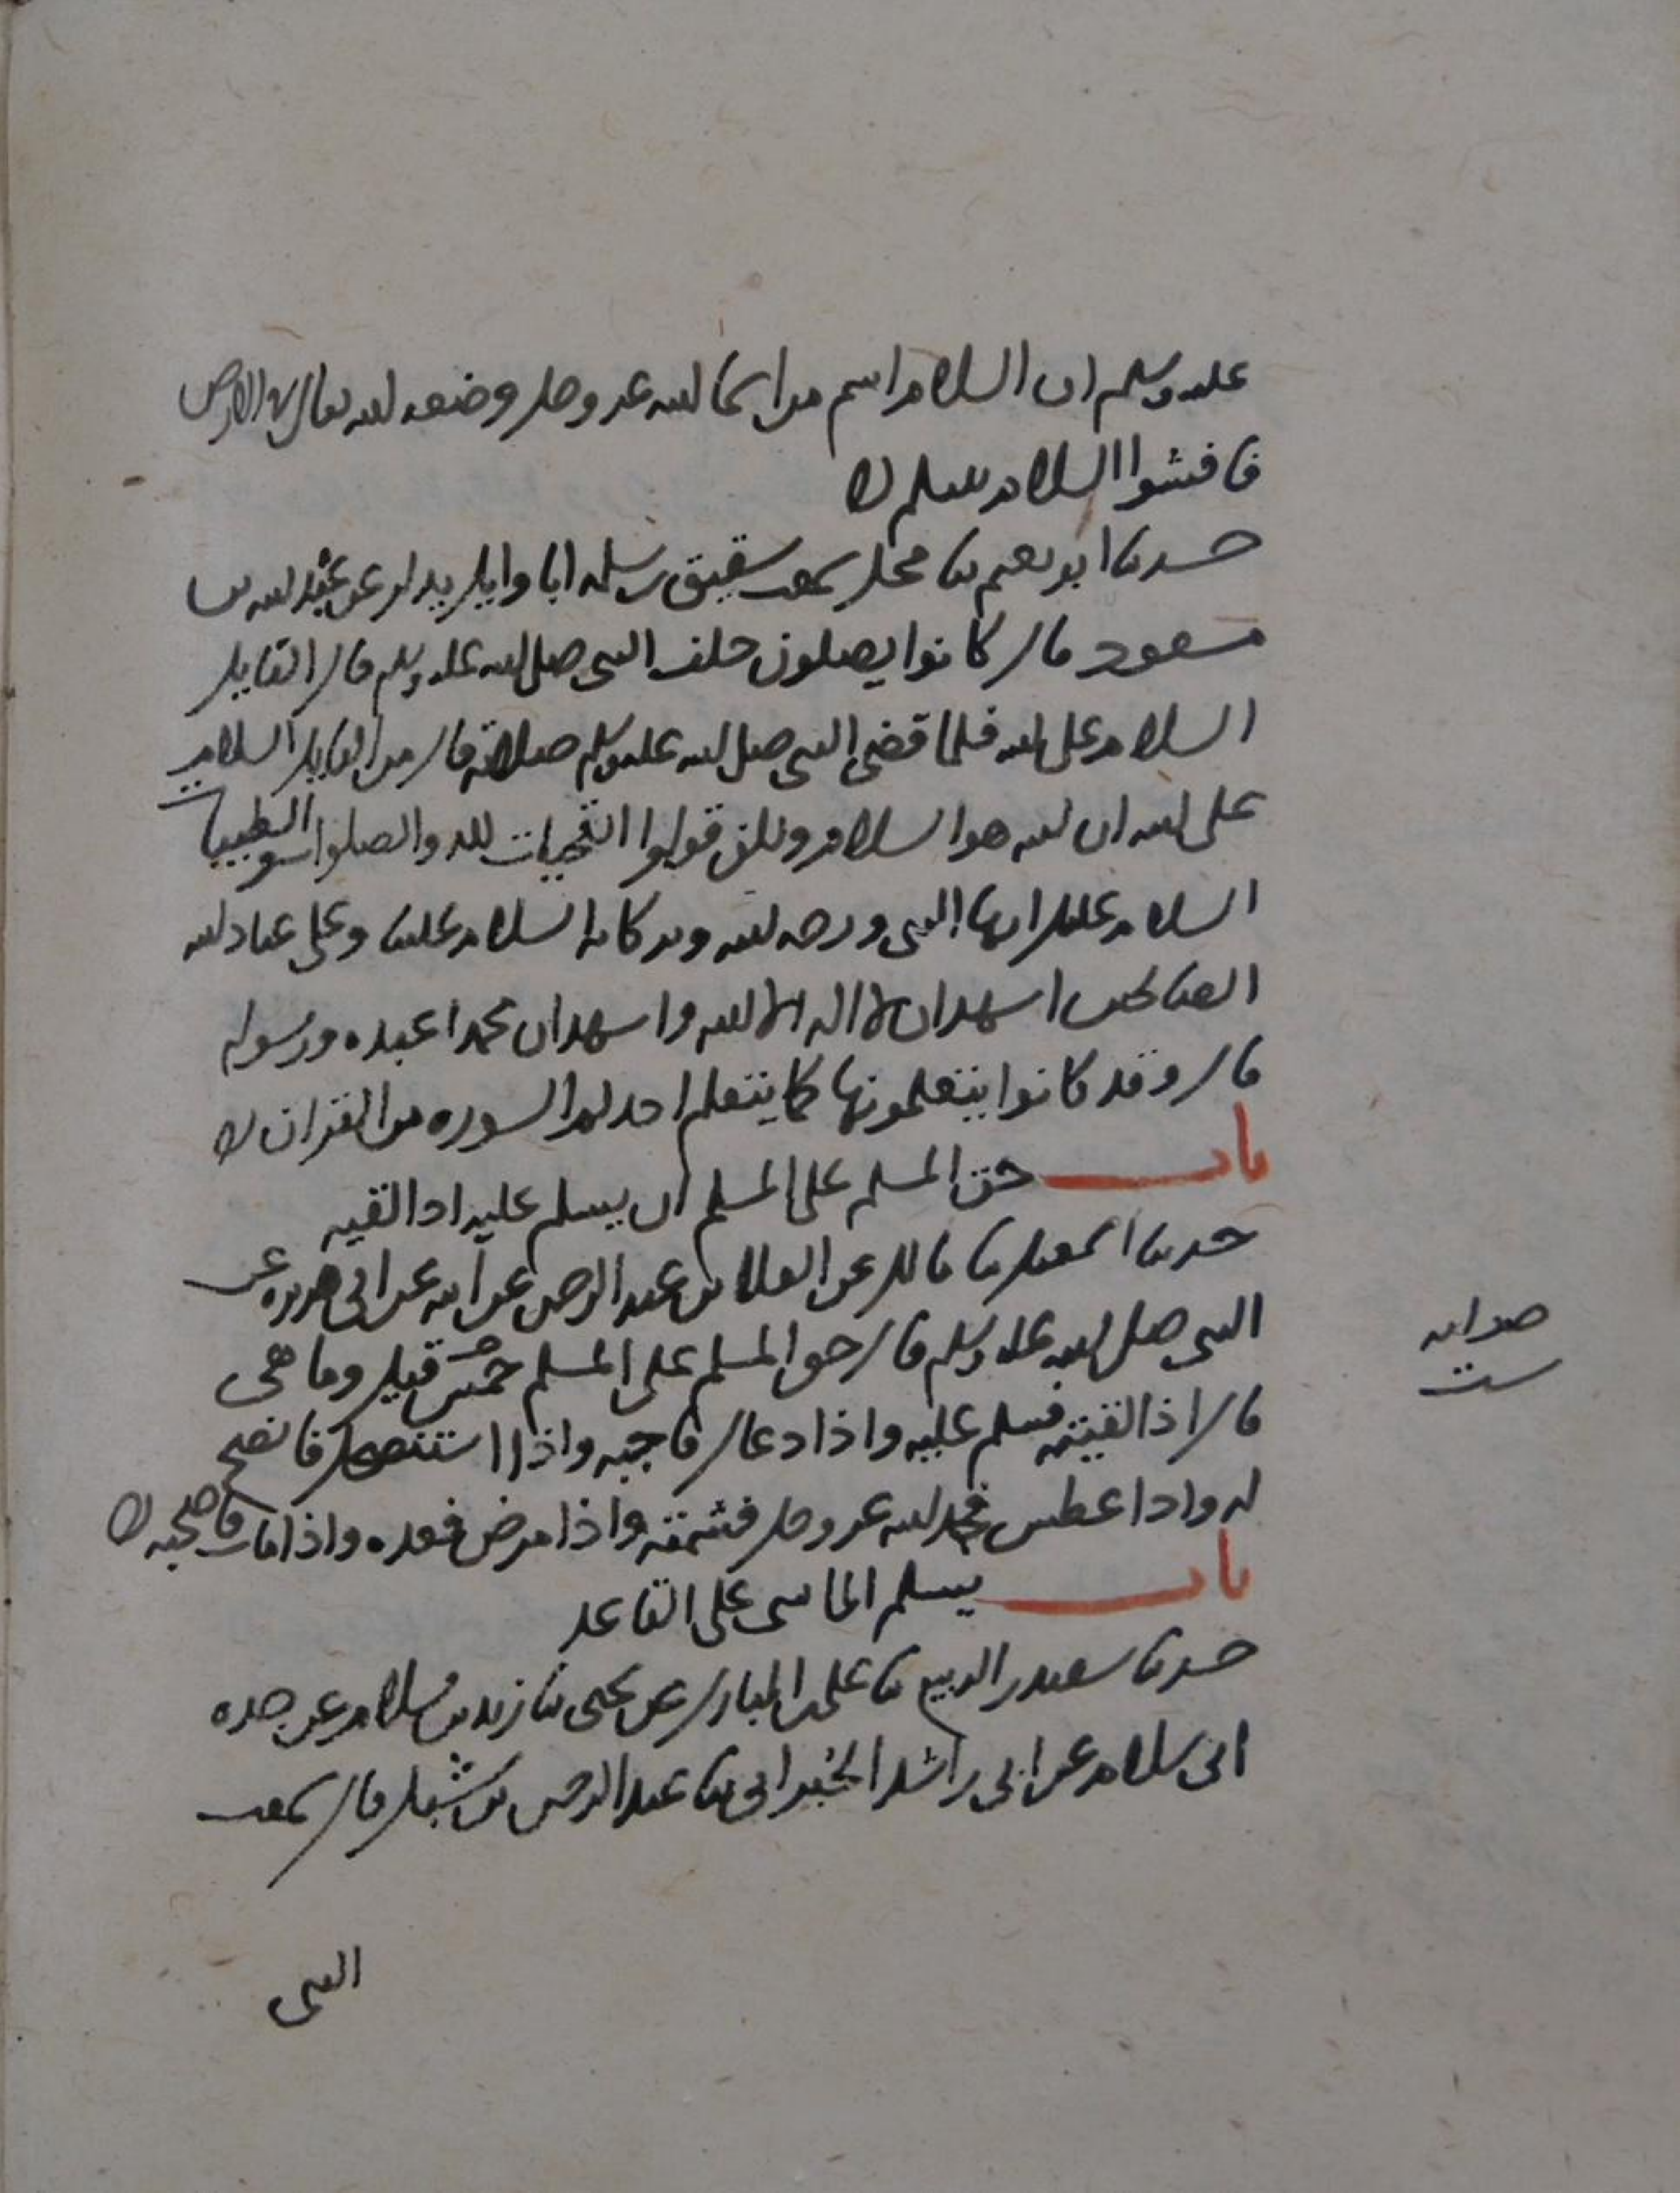 عليه وسلم ان السلام اسم من اسما الله عز وجل وضعه الله تعالى في الارض
فافشوا السلام بينكم
حدثنا ابو نعيم ثنا محل سمعت شقيق بن سلمه ابا وايل يذكر عن عبد الله بن
مسعود قال كانوا يصلون خلف النبي صلى الله عليه وسلم قال القايل
السلام على الله فلما قضى النبي صلى الله عليه وسلم صلاته قال من القايل السلام
على الله ان الله هو السلام ولكن قولوا التحيات لله والصلوات والطيبات
السلام عليك ايها النبي ورحمه الله وبركاته السلام علينا وعلى عباد الله
الصالحين اشهد ان لا اله الا الله واشهد ان محمدا عبده ورسوله
قال وقد كانوا يتعلمونها كما يتعلم احدكم السوره من القران
باب حق المسلم على المسلم ان يسلم عليه اذا لقيه
حدثنا اسمعيل ثنا مالك عن العلا بن عبد الرحمن عن ابيه عن ابي هريره عن
النبي صلى الله عليه وسلم قال حق المسلم على المسلم خمس قيل وما هي
قال اذا لقيته فسلم عليه واذا دعاك فاجبه واذا استنصحك فانصح
له واذا عطس فحمد الله عز وجل فشمته واذا مرض فعده واذا مات فاصحبه
صوابه
ست
باب يسلم الماشي على القاعد
حدثنا سعيد بن الربيع ثنا علي بن المبارك عن يحيى ثنا زيد بن سلام عن جده
ابي سلام عن ابي راشد الحبراني ثنا عبد الرحمن بن شبل قال سمعت
النبي